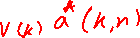 v(k) a*(k,n)